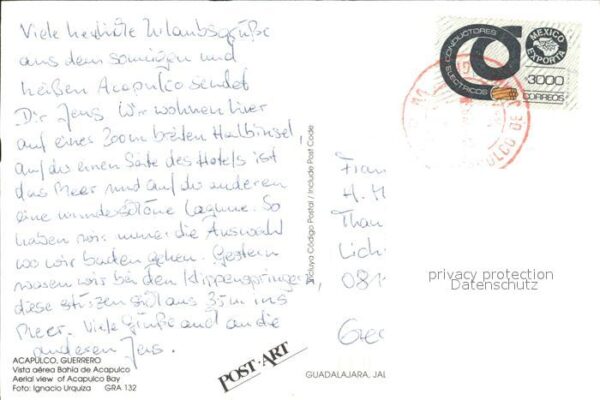 Viele herzliche Urlaubsgrüße
aus dem sonnigen und
heißen Acapulco sendet
Dir Jens. Wir wohnen hier
auf einer 300m breiten Halbinsel,
auf der einen Seite des Hotels ist
das Meer und auf der anderen
eine wunderschöne Lagune. So
haben wir immer die Auswahl
wo wir baden gehen. Gestern
waren wir bei den Klippenspringern,
diese stürzen sich aus 35m ins
Meer. Viele Grüße auch an die
anderen Jens.
ACAPULCO, GUERRERO
Vista aérea Bahía de Acapulco
Aerial view of Acapulco Bay
Foto: Ignacio Urquiza GRA 132
POST-ART
Incluya Código Postal / Include Post Code
GUADALAJARA, JAL
CONDUCTORES
ELECTRICOS
MEXICO
EXPORTA
3000
CORREOS
Fran
H.
Than
Lich
081
privacy protection
Datenschutz